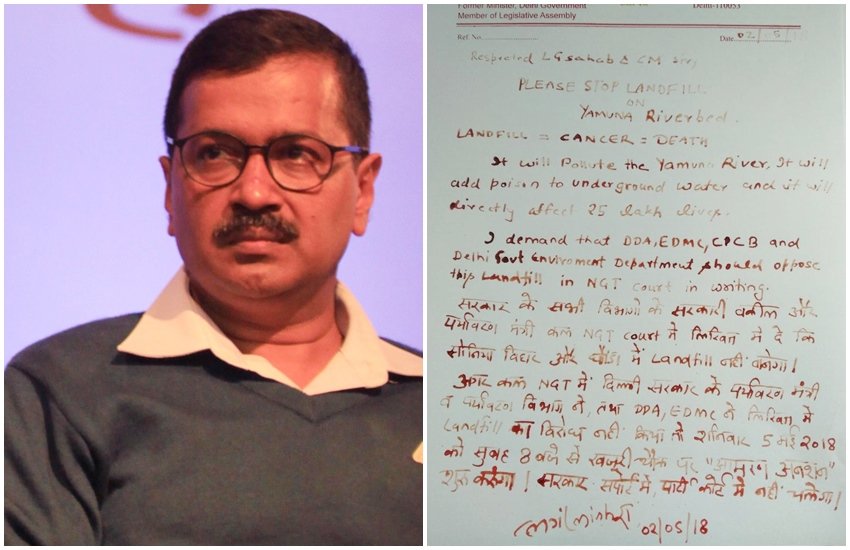 Former Minister, Delhi Government
Member of Legislative Assembly
Delhi-110053
Ref. No.
Date 02/05/18
Respected LG sahab & CM sir,
PLEASE STOP LANDFILL
ON
YAMUNA Riverbed.
LANDFILL = CANCER = DEATH
It will Pollute the Yamuna River. It will
add poison to underground water and it will
directly affect 25 lakh lives.
I demand that DDA, EDMC, CPCB and
Delhi Govt Enviroment Department should oppose
this Landfill in NGT court in writing.
सरकार के सभी विभागों के सरकारी वकील और
पर्यावरण मंत्री कल NGT court में लिखित में दे कि
सोनिया विहार और घोंडा में Landfill नहीं बनेगा!
अगर कल NGT में दिल्ली सरकार के पर्यावरण मंत्री
व पर्यावरण विभाग ने, तथा DDA, EDMC ने लिखित में
Landfill का विरोध नहीं किया तो शनिवार 5 मई 2018
को सुबह 8 बजे से खजूरी चौक पर "आमरण अनशन"
शुरु करूंगा! सरकार सपोर्ट में, पार्टी कोर्ट में नहीं चलेगा!
02/05/18